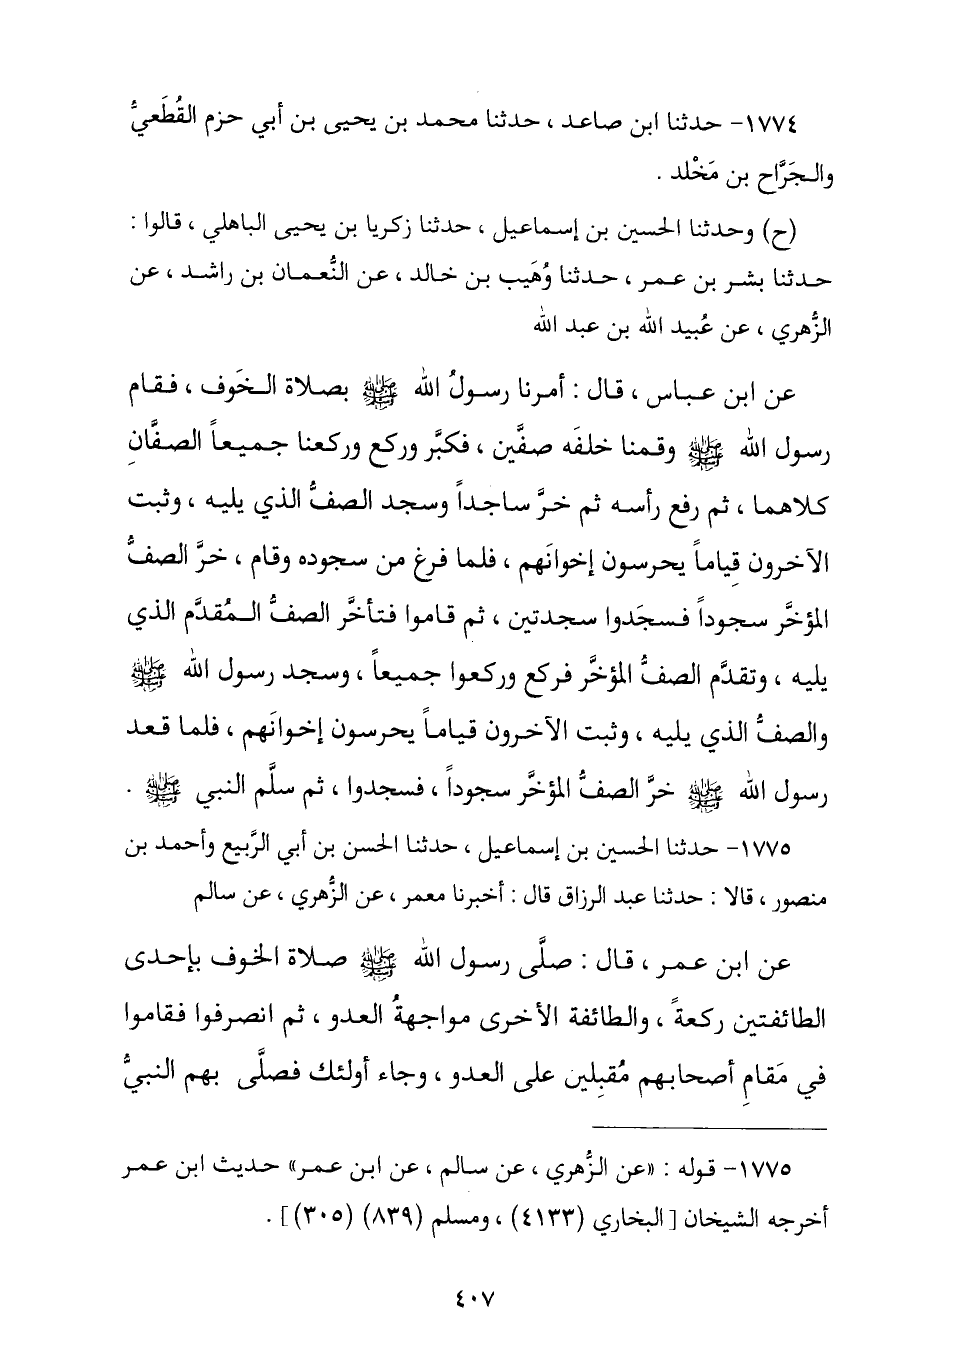 ١٧٧٤- حدثنا ابن صاعد ، حدثنا محمد بن يحيى بن أبي حزم القُطَعيُّ
والجَرَّاح بن مَخْلد .
(ح) وحدثنا الحسين بن إسماعيل ، حدثنا زكريا بن يحيى الباهلي ، قالوا :
حدثنا بشر بن عمر ، حدثنا وُهَيب بن خالد ، عن النُّعمان بن راشد ، عن
الزُّهري ، عن عُبيد الله بن عبد الله
عن ابن عباس ، قال : أمرنا رسولُ الله ﷺ بصلاة الخَوف ، فقام
رسول الله ﷺ وقمنا خلفَه صفَّين ، فكبَّر وركع وركعنا جميعاً الصفَّانِ
كلاهما ، ثم رفع رأسه ثم خرَّ ساجداً وسجد الصفُّ الذي يليه ، وثبت
الآخرون قِياماً يحرسون إخوانَهم ، فلما فرغ من سجوده وقام ، خرَّ الصفُّ
المؤخَّر سجوداً فسجَدوا سجدتين ، ثم قاموا فتأخَّر الصفُّ المُقدَّم الذي
يليه ، وتقدَّم الصفُّ المؤخَّر فركع وركعوا جميعاً ، وسجد رسول الله ﷺ
والصفُّ الذي يليه ، وثبت الآخرون قياماً يحرسون إخوانَهم ، فلما قعد
رسول الله ﷺ خرَّ الصفُّ المؤخَّر سجوداً ، فسجدوا ، ثم سلَّم النبي ﷺ .
١٧٧٥- حدثنا الحسين بن إسماعيل ، حدثنا الحسن بن أبي الرَّبيع وأحمد بن
منصور ، قالا : حدثنا عبد الرزاق قال : أخبرنا معمر ، عن الزُّهري ، عن سالم
عن ابن عمر ، قال : صلَّى رسول الله ﷺ صلاة الخوف بإحدى
الطائفتين ركعةً ، والطائفة الأخرى مواجهةُ العدو ، ثم انصرفوا فقاموا
في مَقامِ أصحابهم مُقبِلين على العدو ، وجاء أولئك فصلَّى بهم النبيُّ
١٧٧٥- قوله : «عن الزُّهري ، عن سالم ، عن ابن عمر» حديث ابن عمر
أخرجه الشيخان [البخاري (٤١٣٣) ، ومسلم (٨٣٩) (٣٠٥)] .
٤٠٧